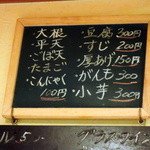 大根
平天
ごぼ天
たまご
こんにゃく
100円
豆腐 300円
すじ 200円
厚あげ 150円
がんも 300
小芋 300円
ル 5